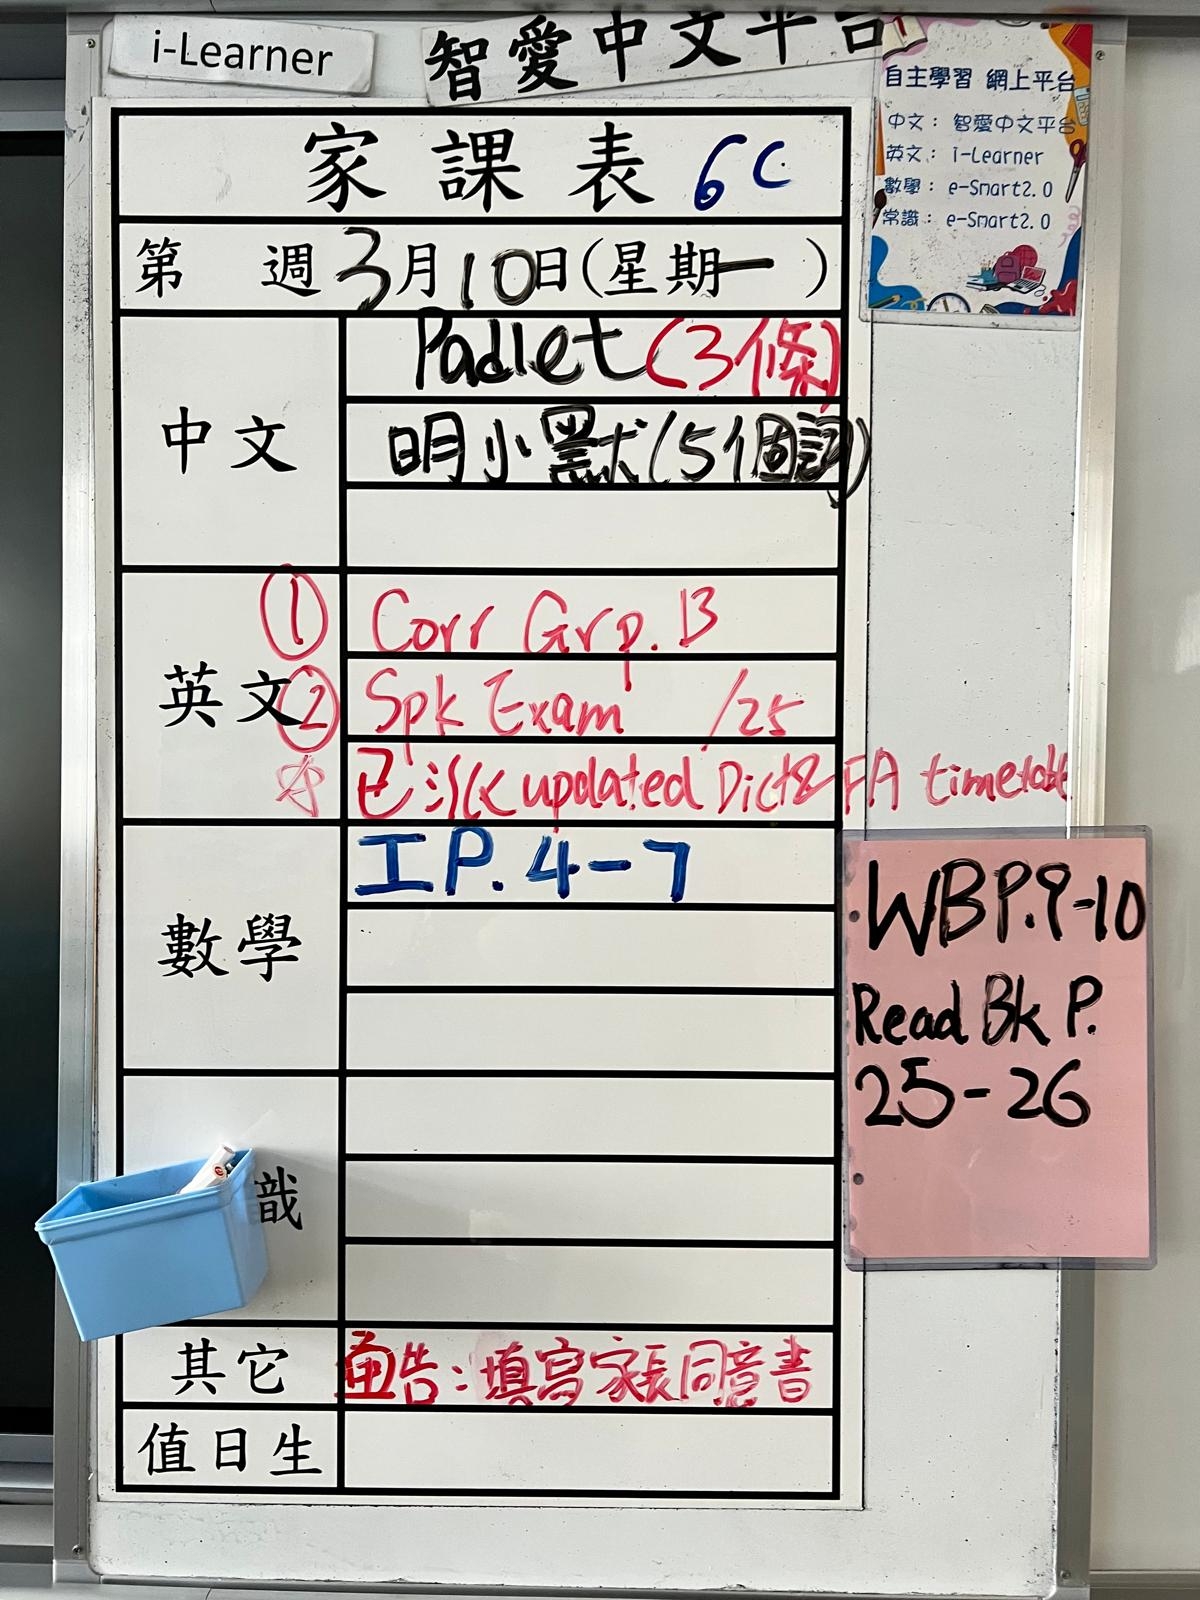 i-Learner
智愛中文平台
自主學習 網上平台
中文： 智愛中文平台
英文： i-Learner
數學： e-Smart2.0
常識： e-Smart2.0
家課表 6C
第 週 3月10日(星期一 )
中文
Padlet (3條)
明小默(5個詞)
英文
① Corr Grp. B
② Spk Exam /25
☆ 已派 updated Dict & FA timetable
數學
工 P. 4-7
WB P.9-10
Read Bk P.
25-26
識
其它
通告：填寫家長同意書
值日生